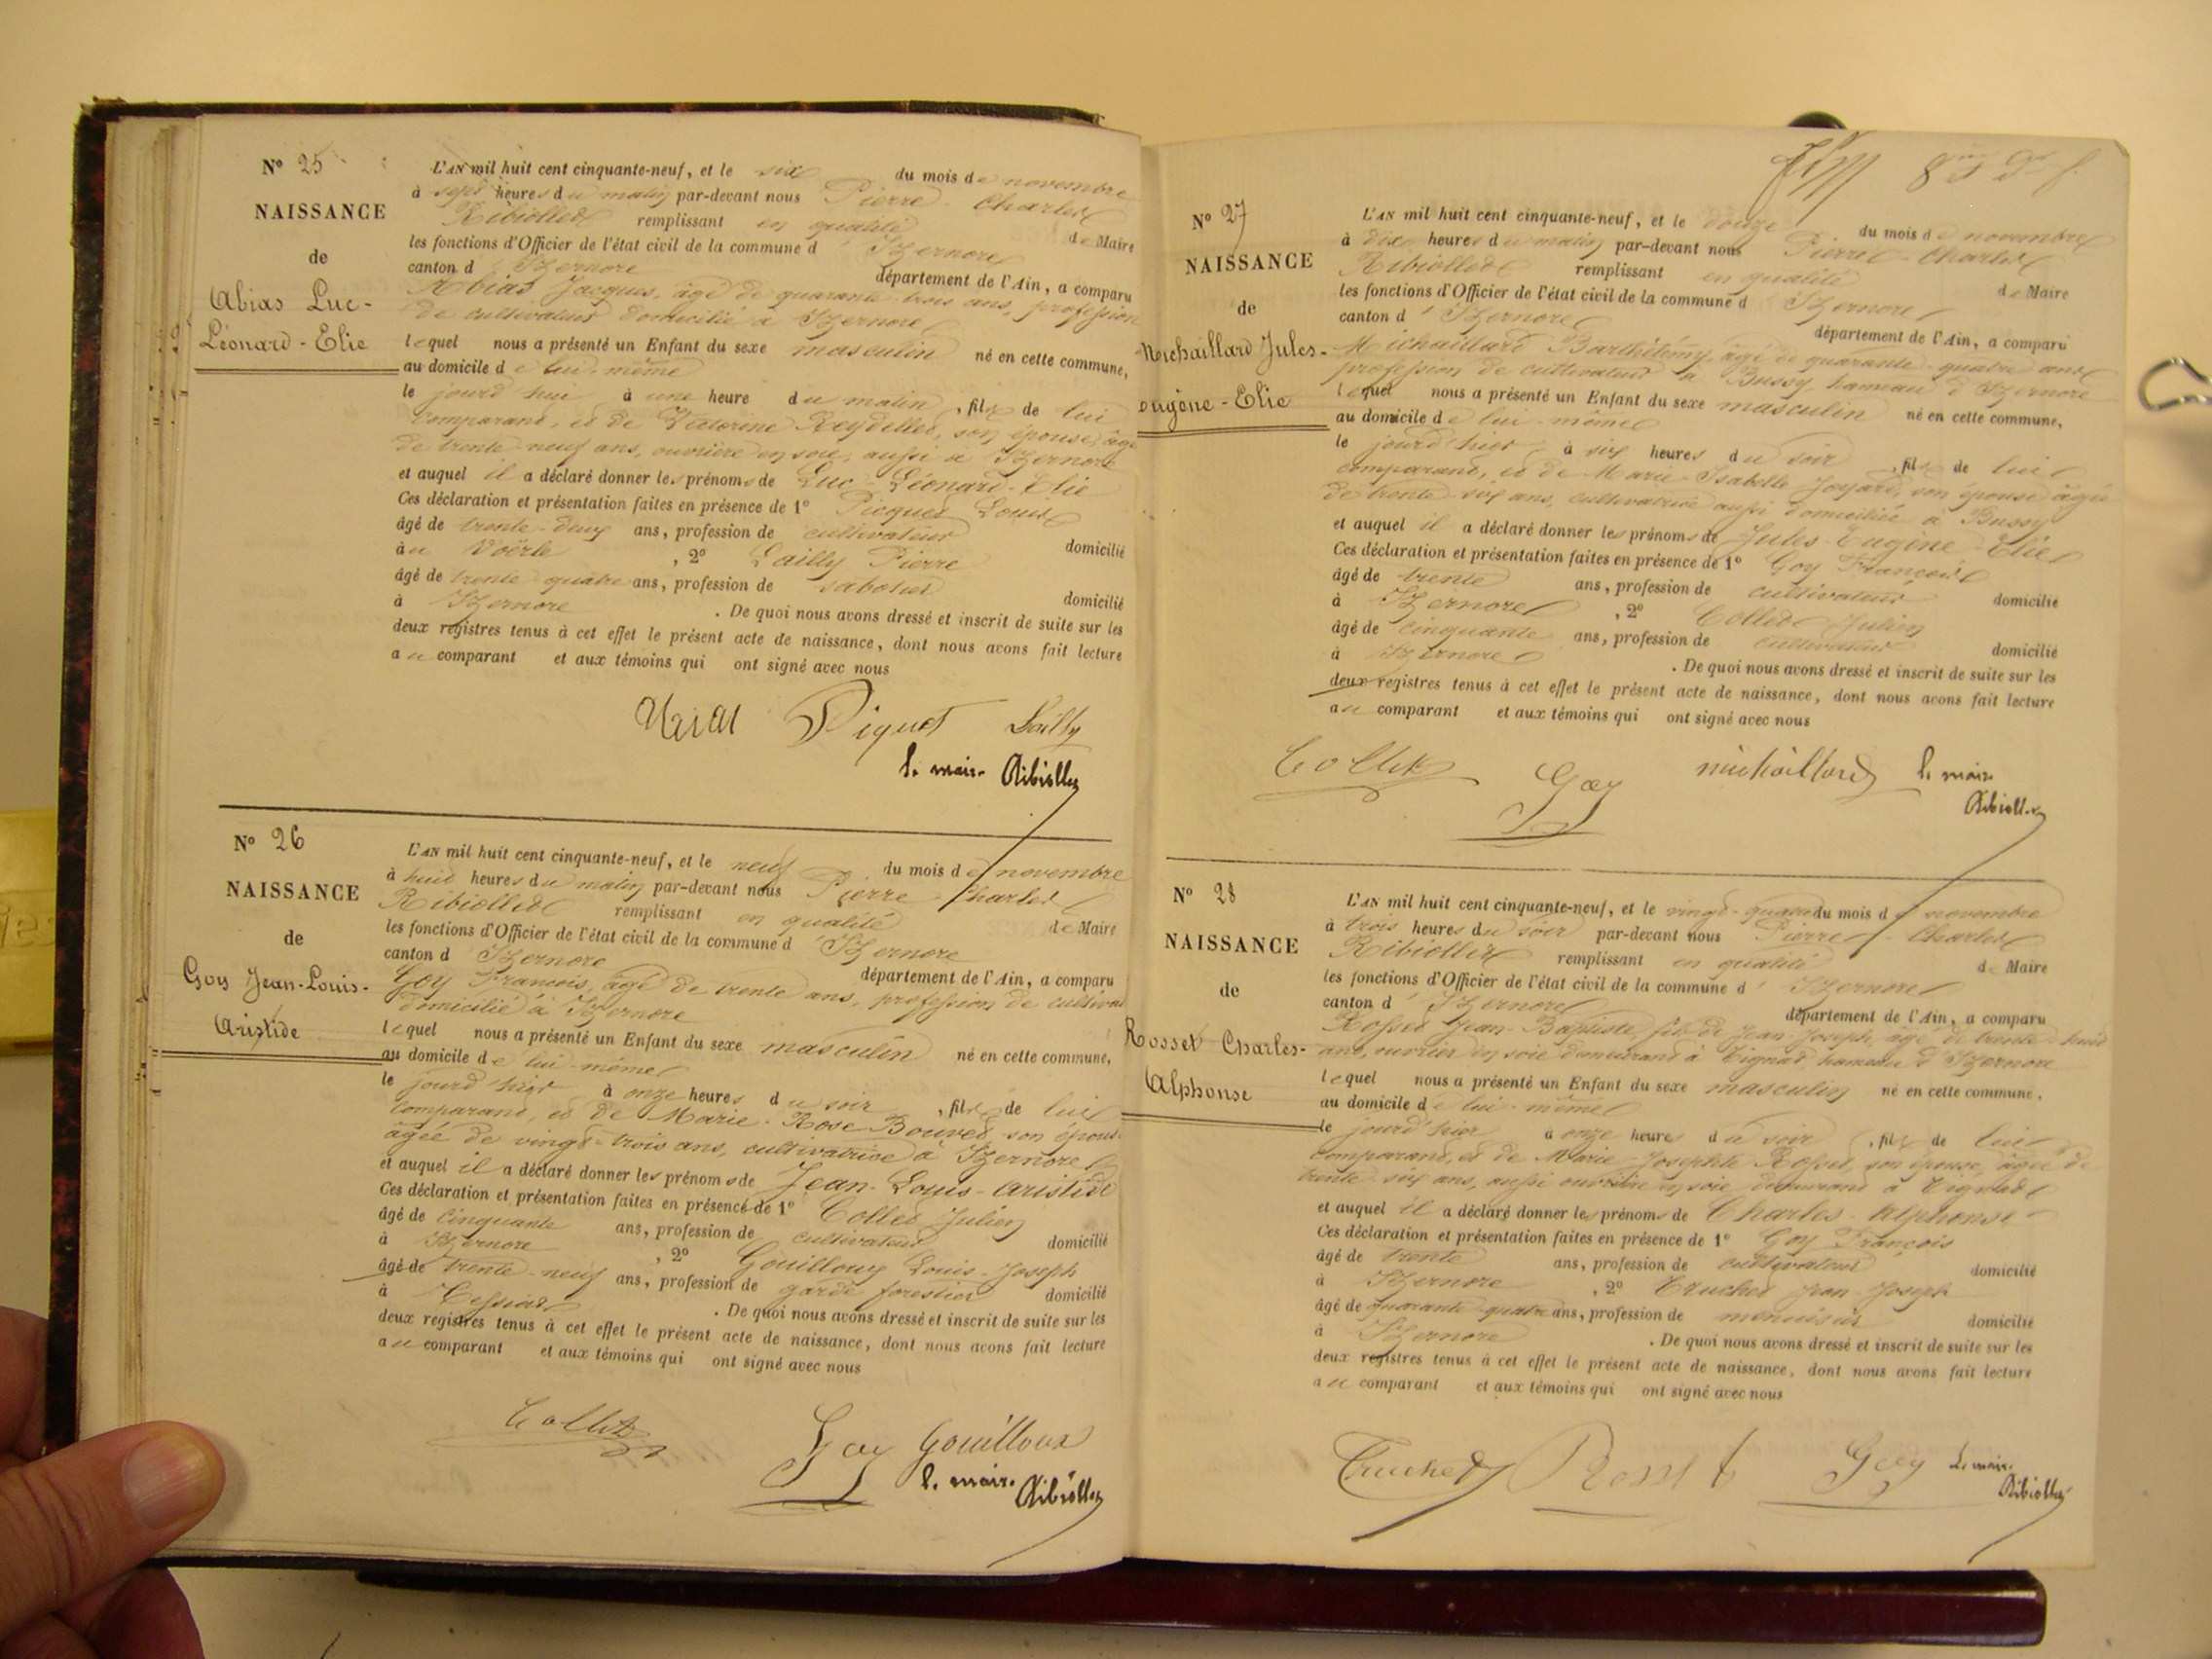 N° 25
NAISSANCE
de
Abias Luc-
Léonard-Elie
L'AN mil huit cent cinquante-neuf, et le six du mois de novembre
à sept heures du matin par-devant nous Pierre-Charles
Ribiollet remplissant en qualité de Maire
les fonctions d'Officier de l'état civil de la commune d'Izernore
canton d'Izernore département de l'Ain, a comparu
Abias Jacques, âgé de quarante-trois ans, profession
de cultivateur domicilié à Izernore
lequel nous a présenté un Enfant du sexe masculin né en cette commune,
au domicile de lui-même
le jourd'hui à une heure du matin, fils de lui
comparant, et de Victorine Reydellet, son épouse, âgée
de trente-neuf ans, ouvrière en soie, aussi à Izernore
et auquel il a déclaré donner les prénoms de Luc-Léonard-Elie
Ces déclaration et présentation faites en présence de 1° Picquet Louis
âgé de trente-deux ans, profession de cultivateur domicilié
au Voërle, 2° Lailly Pierre
âgé de trente-quatre ans, profession de sabotier domicilié
à Izernore. De quoi nous avons dressé et inscrit de suite sur les
deux registres tenus à cet effet le présent acte de naissance, dont nous avons fait lecture
au comparant et aux témoins qui ont signé avec nous
Piquet Lailly
le maire Ribiollet
N° 26
NAISSANCE
de
Goy Jean-Louis-
Aristide
L'AN mil huit cent cinquante-neuf, et le neuf du mois de novembre
à huit heures du matin par-devant nous Pierre-Charles
Ribiollet remplissant en qualité de Maire
les fonctions d'Officier de l'état civil de la commune d'Izernore
canton d'Izernore département de l'Ain, a comparu
Goy François, âgé de trente ans, profession de cultivat
domicilié à Izernore
lequel nous a présenté un Enfant du sexe masculin né en cette commune,
au domicile de lui-même
le jourd'hier à onze heures du soir, fils de lui
comparant, et de Marie-Rose Bouvet, son épouse
âgée de vingt-trois ans, cultivatrice à Izernore
et auquel il a déclaré donner les prénoms de Jean-Louis-Aristide
Ces déclaration et présentation faites en présence de 1° Collet Julien
âgé de cinquante ans, profession de cultivateur domicilié
à Izernore, 2° Gouilloux Louis-Joseph
âgé de trente-neuf ans, profession de garde forestier domicilié
à . De quoi nous avons dressé et inscrit de suite sur les
deux registres tenus à cet effet le présent acte de naissance, dont nous avons fait lecture
au comparant et aux témoins qui ont signé avec nous
Collet Goy Gouilloux
le maire Ribiollet
N° 27
NAISSANCE
de
Michaillard Jules-
Eugène-Elie
L'AN mil huit cent cinquante-neuf, et le douze du mois de novembre
à dix heures du matin par-devant nous Pierre-Charles
Ribiollet remplissant en qualité de Maire
les fonctions d'Officier de l'état civil de la commune d'Izernore
canton d'Izernore département de l'Ain, a comparu
Michaillard Barthélémy, âgé de quarante-quatre ans
profession de cultivateur à Bussy hameau d'Izernore
lequel nous a présenté un Enfant du sexe masculin né en cette commune,
au domicile de lui-même
le jourd'hier à six heures du soir, fils de lui
comparant, et de Marie-Isabelle Joyard, son épouse âgée
de trente-six ans, cultivatrice aussi domiciliée à Bussy
et auquel il a déclaré donner les prénoms de Jules-Eugène-Elie
Ces déclaration et présentation faites en présence de 1° Goy François
âgé de trente ans, profession de cultivateur domicilié
à Izernore, 2° Collet Julien
âgé de cinquante ans, profession de cultivateur domicilié
à Izernore. De quoi nous avons dressé et inscrit de suite sur les
deux registres tenus à cet effet le présent acte de naissance, dont nous avons fait lecture
au comparant et aux témoins qui ont signé avec nous
Collet Goy michaillard le maire
Ribiollet
N° 28
NAISSANCE
de
Rosset Charles-
Alphonse
L'AN mil huit cent cinquante-neuf, et le vingt-quatre du mois de novembre
à trois heures du soir par-devant nous Pierre-Charles
Ribiollet remplissant en qualité de Maire
les fonctions d'Officier de l'état civil de la commune d'Izernore
canton d'Izernore département de l'Ain, a comparu
Rosset Jean-Baptiste fils de Jean-Joseph, âgé de trente-huit
ans, ouvrier en soie demeurant à Tignat hameau d'Izernore
lequel nous a présenté un Enfant du sexe masculin né en cette commune,
au domicile de lui-même
le jourd'hier à onze heures du soir, fils de lui
comparant, et de Marie-Josephte Rosset, son épouse, âgée de
trente-six ans, aussi ouvrière en soie demeurant à Tignat
et auquel il a déclaré donner les prénoms de Charles-Alphonse
Ces déclaration et présentation faites en présence de 1° Goy François
âgé de trente ans, profession de cultivateur domicilié
à Izernore, 2° Truchet Jean-Joseph
âgé de quarante-quatre ans, profession de menuisier domicilié
à Izernore. De quoi nous avons dressé et inscrit de suite sur les
deux registres tenus à cet effet le présent acte de naissance, dont nous avons fait lecture
au comparant et aux témoins qui ont signé avec nous
Truchet Rosset Goy le maire
Ribiollet